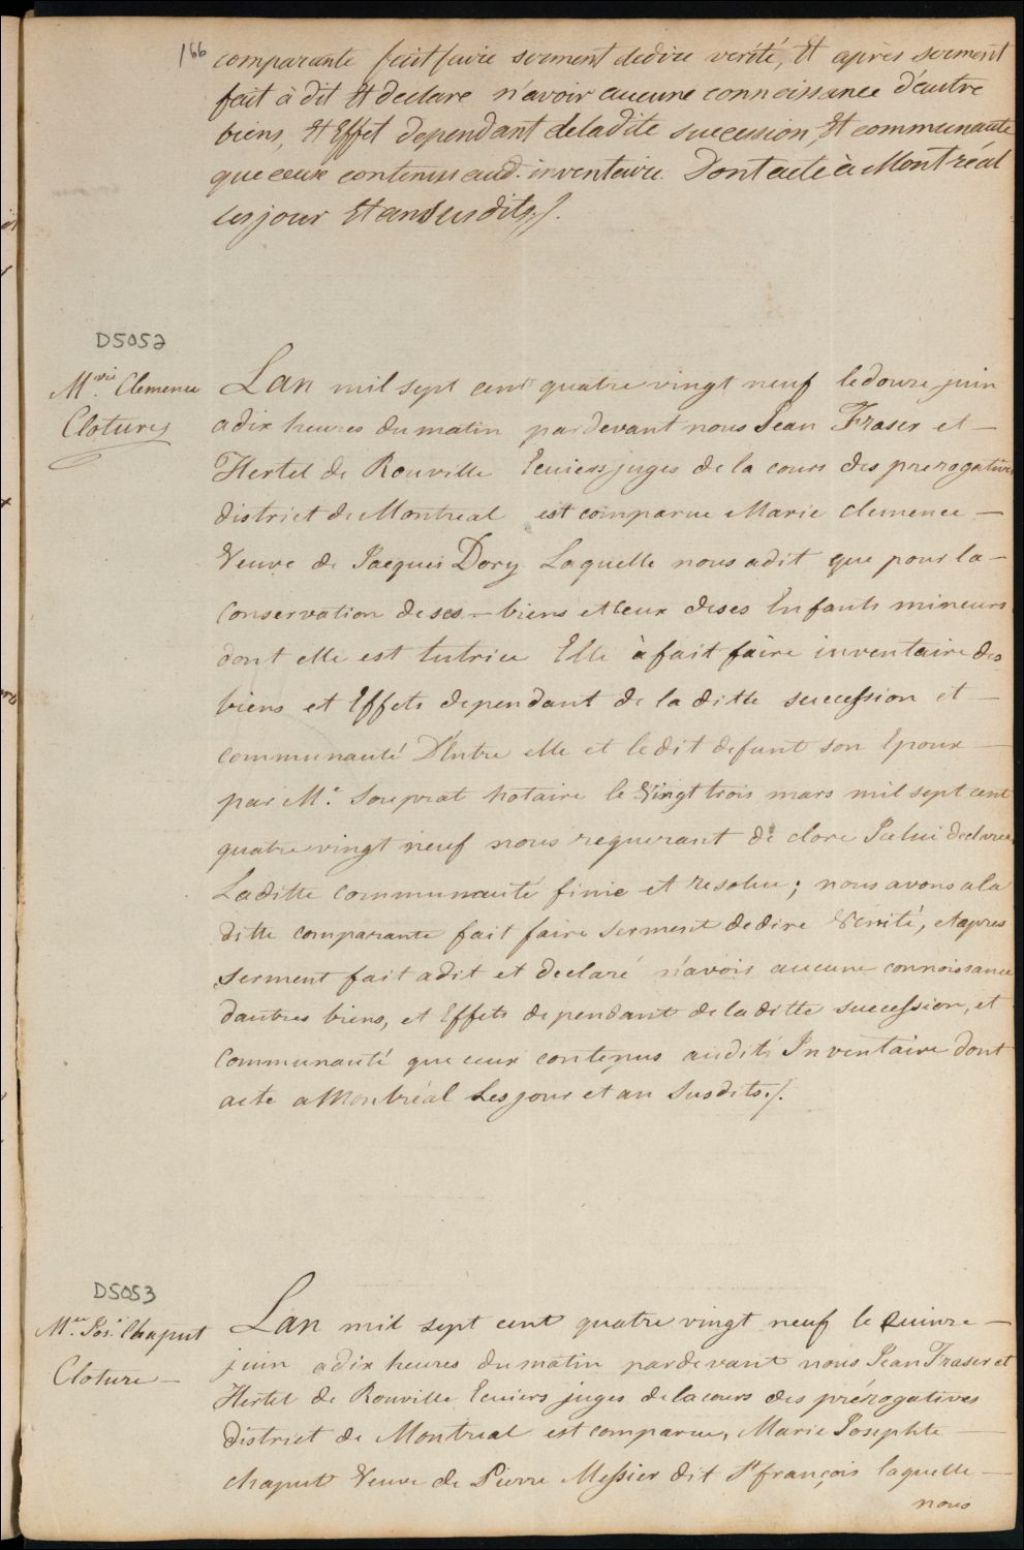 166 comparante fait faire serment dedire verité, Et après serment
fait à dit Et declare n'avoir aucune connoissance d'autre
biens, Et Effet dependant deladite succession, Et communauté
que ceux contenus aud. inventaire. Dont acte à Montréal
les jour Et an susdits ./.
D5052
M.rie Clemence
Cloture
Lan mil sept cent quatre vingt neuf le douze juin
a dix heures du matin pardevant nous Jean Fraser et -
Hertel de Rouville Ecuiers juges de la cours des prerogatives
district de Montreal est comparue Marie Clemence -
Veuve de Jacques Dory Laquelle nous adit que pour la -
Conservation de ses - biens et Ceux deses Enfants mineurs
dont elle est tutrice Elle à fait faire inventaire des
biens et Effets dependant de la ditte succession et -
communauté D'Entre elle et le dit defunt son Epoux -
par M.e Souprat notaire le Vingt trois mars mil sept cent
quatre vingt neuf nous requerant de clore Icelui declarer
La ditte communauté finie et resolue ; nous avons a la
ditte comparante fait faire serment de dire Verité, et apres
Serment fait a dit et declaré n'avois aucune connoissance
dautres biens, et Effets dependant de la ditte succession, et
Communauté que ceux contenus audit Inventaire dont
acte a Montréal Les jour et an Susdits ./.
D5053
M.ie Jos. Chaput
Cloture -
Lan mil sept cent quatre vingt neuf le Quinze -
juin a dix heures du matin pardevant nous Jean Fraser et
Hertel de Rouville Ecuiers juges de la cours des prérogatives
district de Montreal est comparue, Marie Josephte -
chaput Veuve de Pierre Messier dit St françois laquelle -
nous